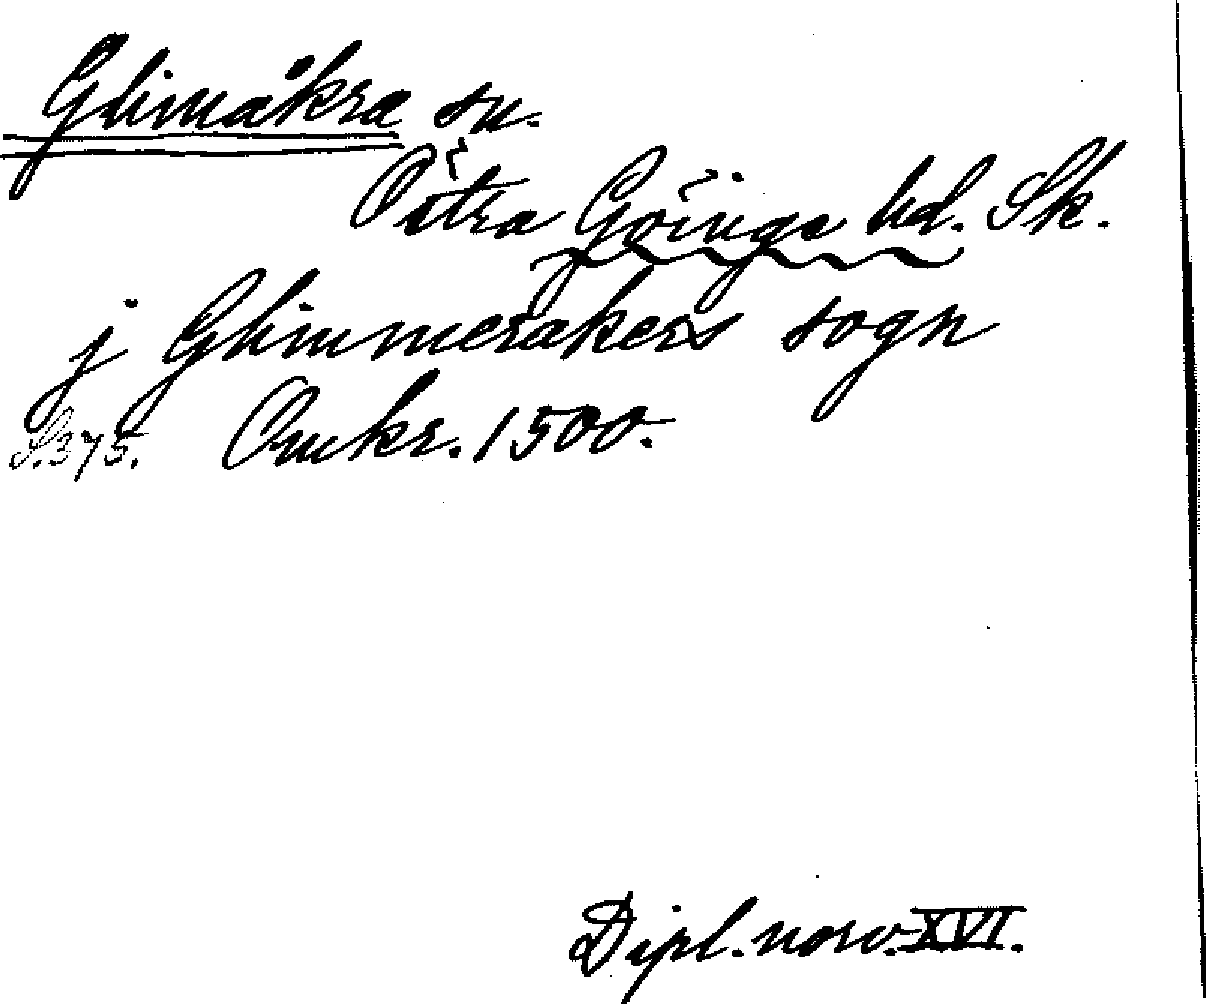 Glimåkra sn.
Östra Göinge hd. Sk.
j Glimmerakers sogn
S. 375. Omkr. 1500.
Dipl. norv. XVI.